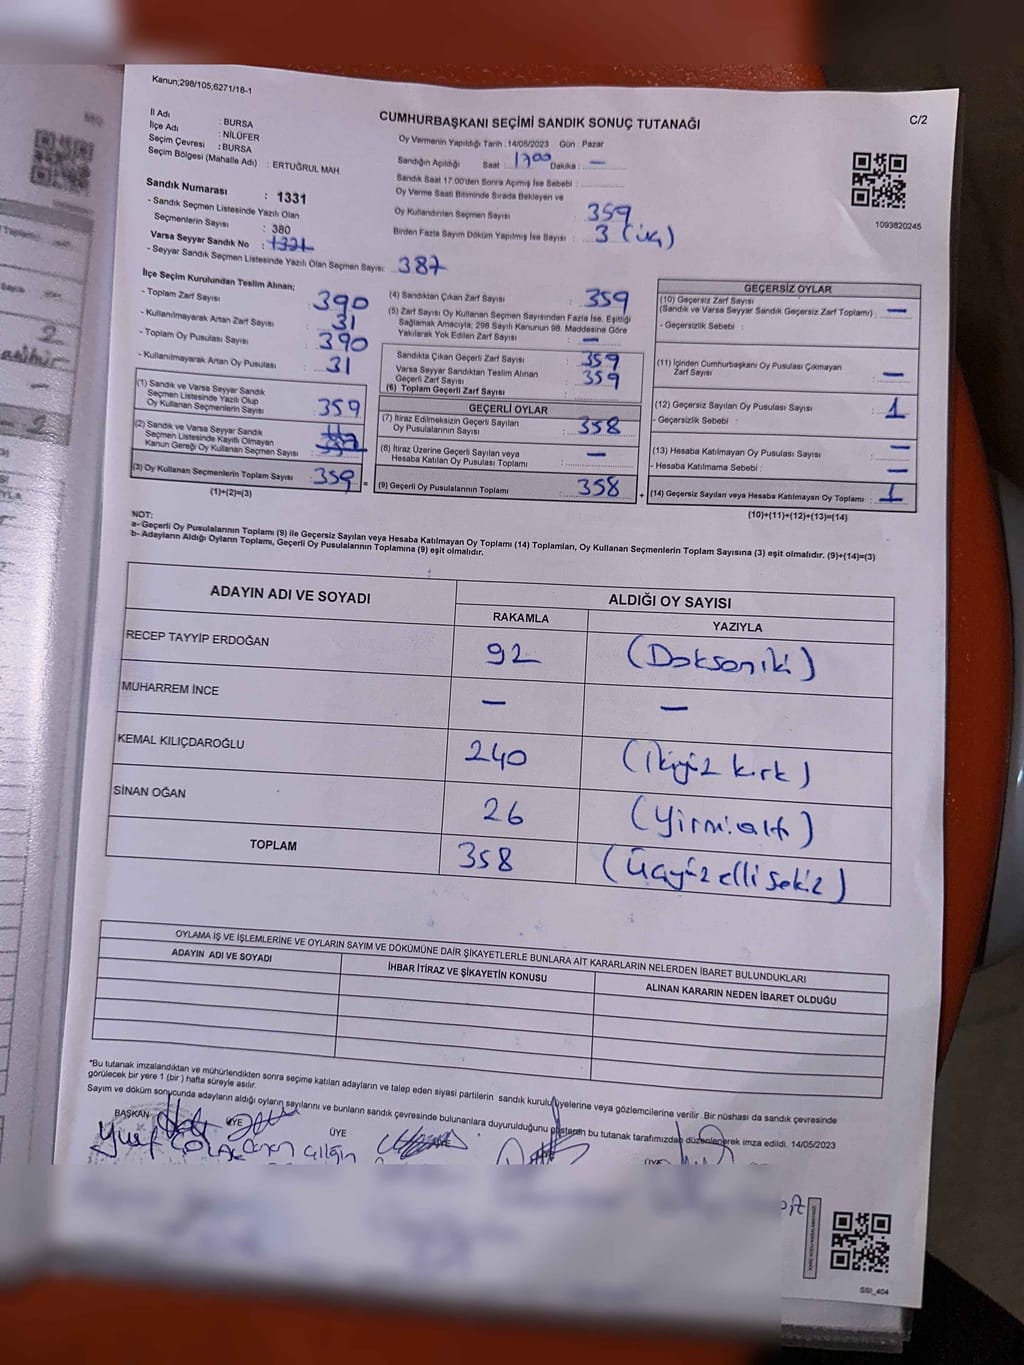 Kanun;298/105,6271/18-1
C/2
CUMHURBAŞKANI SEÇİMİ SANDIK SONUÇ TUTANAĞI
İl Adı : BURSA
İlçe Adı : NİLÜFER
Seçim Çevresi : BURSA
Seçim Bölgesi (Mahalle Adı) : ERTUĞRUL MAH.
Sandık Numarası : 1331
- Sandık Seçmen Listesinde Yazılı Olan
Seçmenlerin Sayısı : 380
Varsa Seyyar Sandık No : 1331
- Seyyar Sandık Seçmen Listesinde Yazılı Olan Seçmen Sayısı: 387
Oy Vermenin Yapıldığı Tarih :14/05/2023 Gün : Pazar
Sandığın Açıldığı Saat : 1700 Dakika : —
Sandık Saat 17:00'den Sonra Açılmış İse Sebebi :
Oy Verme Saati Bitiminde Sırada Bekleyen ve
Oy Kullandırılan Seçmen Sayısı : 359
Birden Fazla Sayım Döküm Yapılmış İse Sayısı : 3 (üç)
1093820245
İlçe Seçim Kurulundan Teslim Alınan;
- Toplam Zarf Sayısı : 390
- Kullanılmayarak Artan Zarf Sayısı : 31
- Toplam Oy Pusulası Sayısı : 390
- Kullanılmayarak Artan Oy Pusulası : 31
(1) Sandık ve Varsa Seyyar Sandık
Seçmen Listesinde Yazılı Olup
Oy Kullanan Seçmenlerin Sayısı : 359
(2) Sandık ve Varsa Seyyar Sandık
Seçmen Listesinde Kayıtlı Olmayan
Kanun Gereği Oy Kullanan Seçmen Sayısı :
(3) Oy Kullanan Seçmenlerin Toplam Sayısı : 359 =
(1)+(2)=(3)
(4) Sandıktan Çıkan Zarf Sayısı : 359
(5) Zarf Sayısı Oy Kullanan Seçmen Sayısından Fazla İse, Eşitliği
Sağlamak Amacıyla; 298 Sayılı Kanunun 98. Maddesine Göre
Yakılarak Yok Edilen Zarf Sayısı : —
Sandıkta Çıkan Geçerli Zarf Sayısı : 359
Varsa Seyyar Sandıktan Teslim Alınan
Geçerli Zarf Sayısı : 359
(6) Toplam Geçerli Zarf Sayısı :
GEÇERLİ OYLAR
(7) İtiraz Edilmeksizin Geçerli Sayılan
Oy Pusulalarının Sayısı : 358
(8) İtiraz Üzerine Geçerli Sayılan veya
Hesaba Katılan Oy Pusulası Toplamı : —
(9) Geçerli Oy Pusulalarının Toplamı : 358 +
GEÇERSİZ OYLAR
(10) Geçersiz Zarf Sayısı
(Sandık ve Varsa Seyyar Sandık Geçersiz Zarf Toplamı) : —
- Geçersizlik Sebebi :
(11) İçinden Cumhurbaşkanı Oy Pusulası Çıkmayan
Zarf Sayısı : —
(12) Geçersiz Sayılan Oy Pusulası Sayısı : 1
- Geçersizlik Sebebi :
(13) Hesaba Katılmayan Oy Pusulası Sayısı : —
- Hesaba Katılmama Sebebi : —
(14) Geçersiz Sayılan veya Hesaba Katılmayan Oy Toplamı : 1
(10)+(11)+(12)+(13)=(14)
NOT:
a- Geçerli Oy Pusulalarının Toplamı (9) ile Geçersiz Sayılan veya Hesaba Katılmayan Oy Toplamı (14) Toplamları, Oy Kullanan Seçmenlerin Toplam Sayısına (3) eşit olmalıdır. (9)+(14)=(3)
b- Adayların Aldığı Oyların Toplamı, Geçerli Oy Pusulalarının Toplamına (9) eşit olmalıdır.
ADAYIN ADI VE SOYADI ALDIĞI OY SAYISI
RAKAMLA YAZIYLA
RECEP TAYYİP ERDOĞAN 92 (Doksaniki)
MUHARREM İNCE — —
KEMAL KILIÇDAROĞLU 240 (ikiyüz kırk)
SİNAN OĞAN 26 (yirmialtı)
TOPLAM 358 (Üçyüz elli sekiz)
OYLAMA İŞ VE İŞLEMLERİNE VE OYLARIN SAYIM VE DÖKÜMÜNE DAİR ŞİKAYETLERLE BUNLARA AİT KARARLARIN NELERDEN İBARET BULUNDUKLARI
ADAYIN ADI VE SOYADI İHBAR İTİRAZ VE ŞİKAYETİN KONUSU ALINAN KARARIN NEDEN İBARET OLDUĞU
*Bu tutanak imzalandıktan ve mühürlendikten sonra seçime katılan adayların ve talep eden siyasi partilerin sandık kurulu üyelerine veya gözlemcilerine verilir .Bir nüshası da sandık çevresinde
görülecek bir yere 1 (bir ) hafta süreyle asılır.
Sayım ve döküm sonucunda adayların aldığı oyların sayılarını ve bunların sandık çevresinde bulunanlara duyurulduğunu gösteren bu tutanak tarafımızdan düzenlenerek imza edildi. 14/05/2023
BAŞKAN ÜYE ÜYE
SSI_404